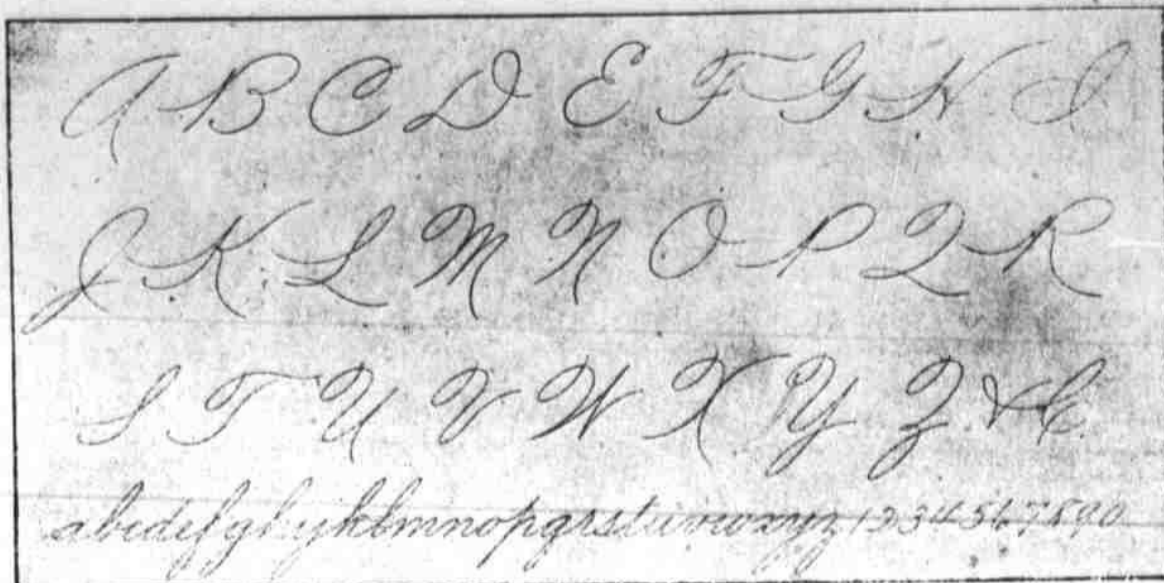 A B C D E F G H I
J K L M N O P Q R
S T U V W X Y Z &C.
abcdefghijklmnopqrstuvwxyz 1234567890